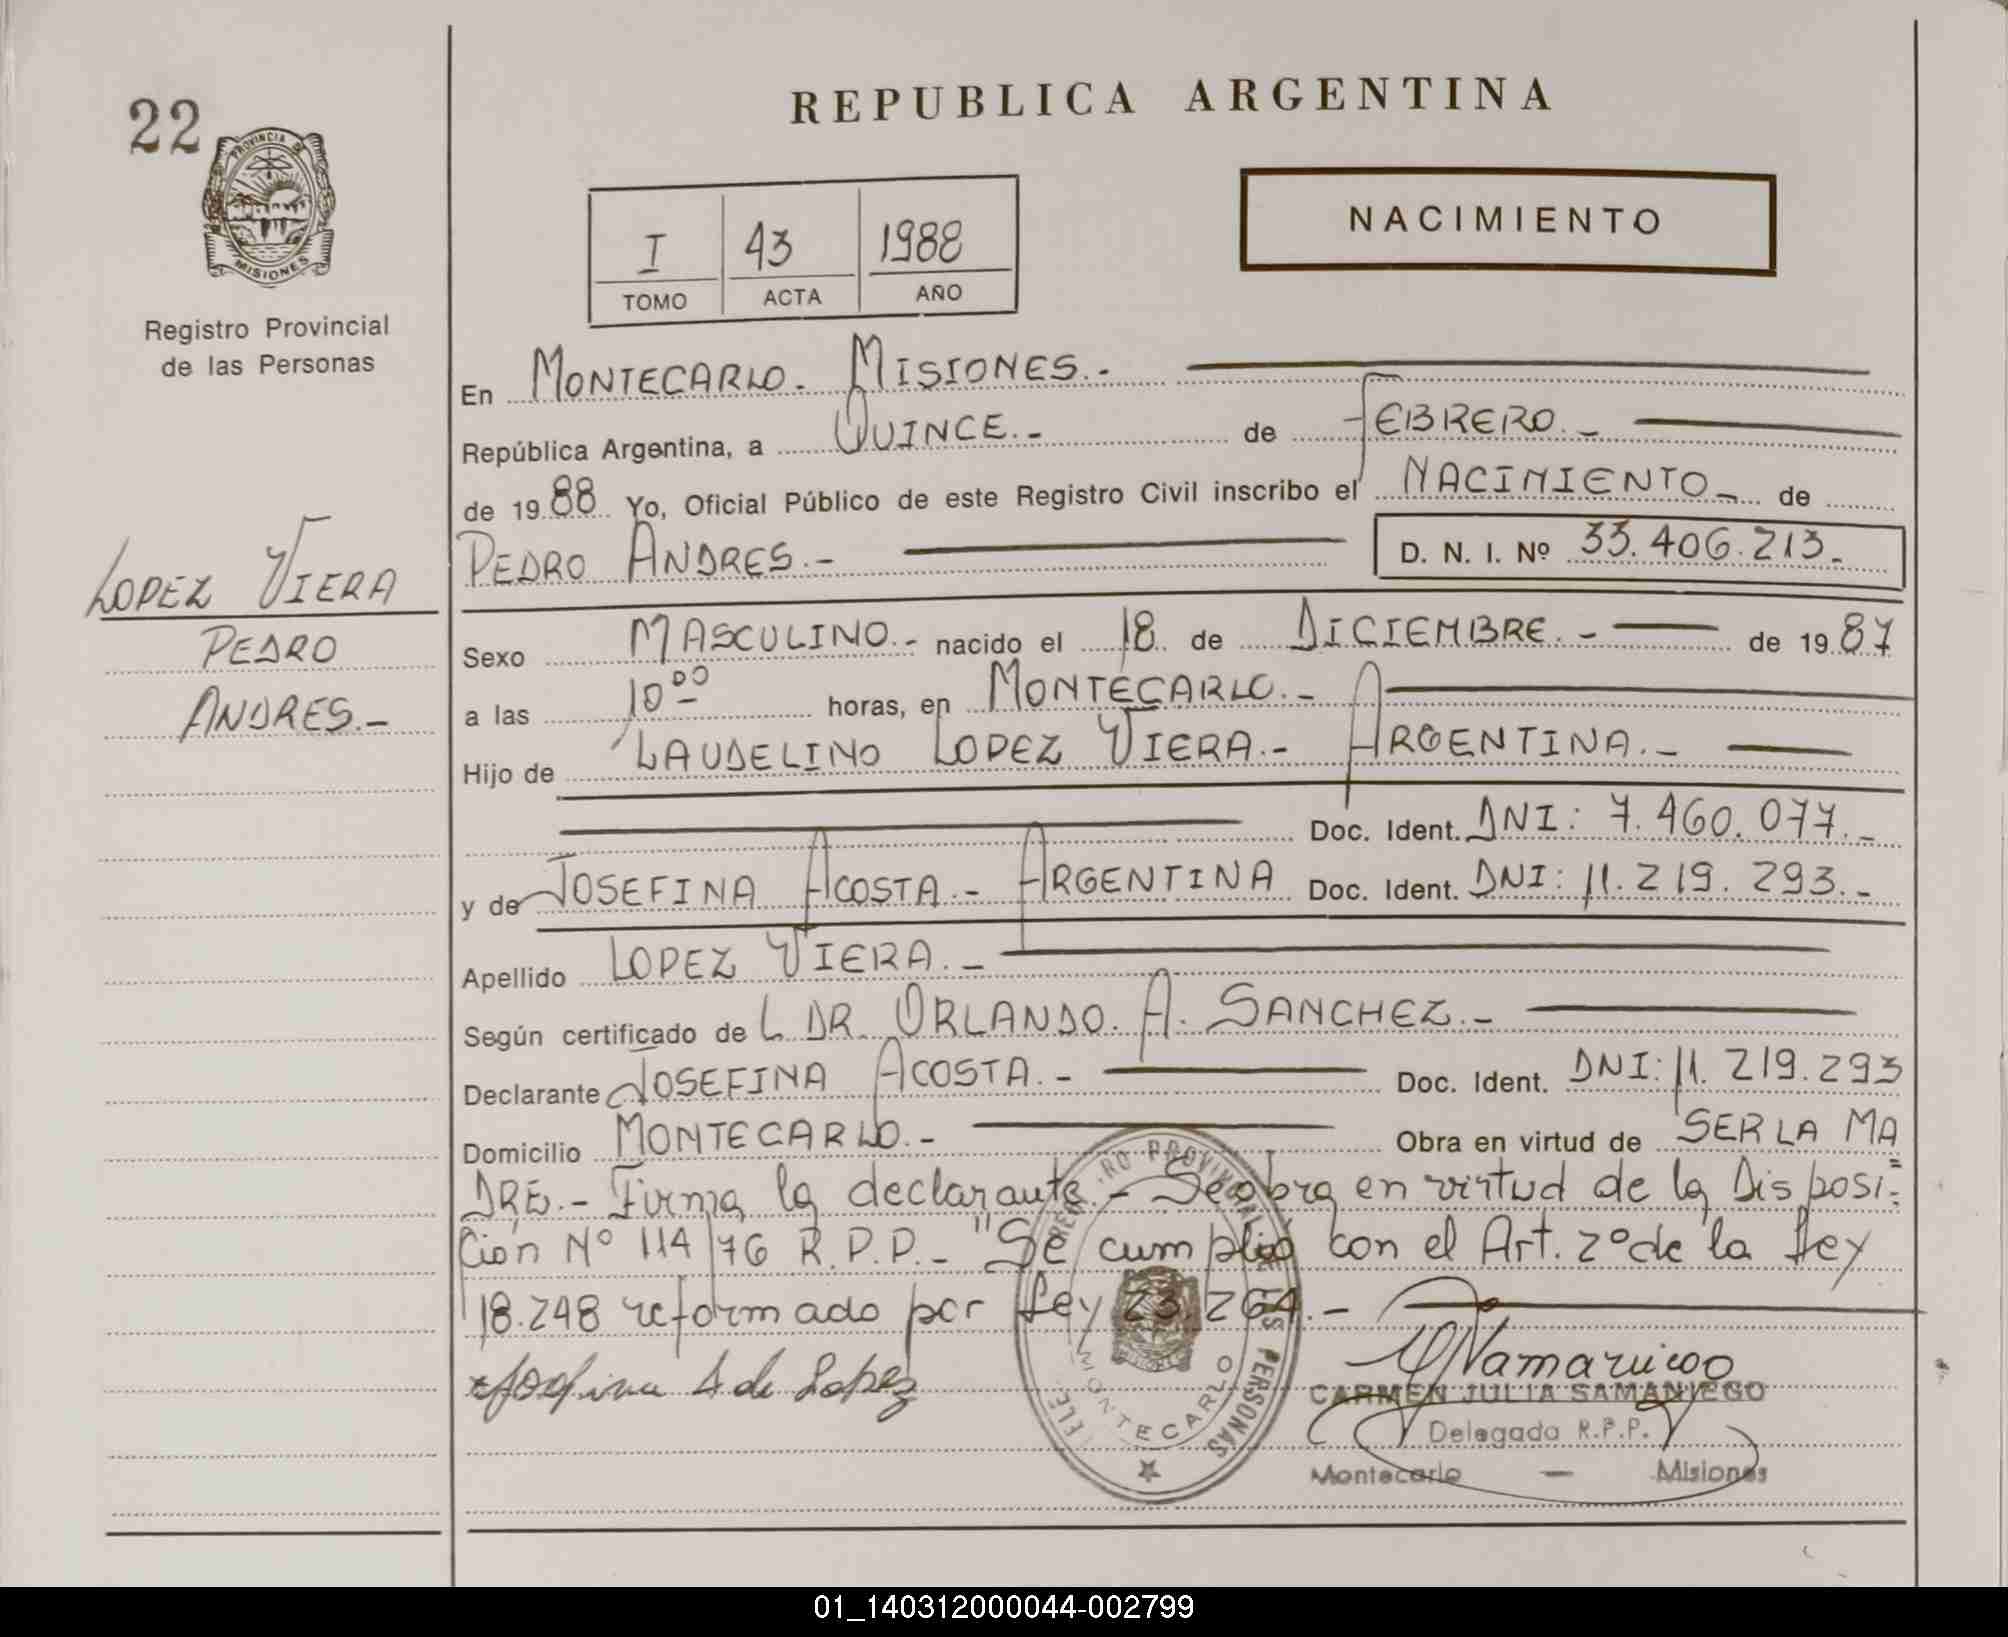 22
PROVINCIA DE
MISIONES
Registro Provincial
de las Personas
LOPEZ VIERA
PEDRO
ANDRES.-
REPUBLICA ARGENTINA
I 43 1988
TOMO ACTA AÑO
NACIMIENTO
En MONTECARLO. MISIONES.-
República Argentina, a QUINCE.- de FEBRERO.-
de 1988 Yo, Oficial Público de este Registro Civil inscribo el NACIMIENTO- de
PEDRO ANDRES.- D. N. I. Nº 33.406.213.-
Sexo MASCULINO.- nacido el 18 de DICIEMBRE.- de 1987
a las 10 00 horas, en MONTECARLO.-
Hijo de LAUDELINO LOPEZ VIERA.- ARGENTINA.-
Doc. Ident. DNI: 7.460.077.-
y de JOSEFINA ACOSTA.- ARGENTINA Doc. Ident. DNI: 11.219.293.-
Apellido LOPEZ VIERA.-
Según certificado de L DR. ORLANDO. A. SANCHEZ.-
Declarante JOSEFINA ACOSTA.- Doc. Ident. DNI: 11.219.293
Domicilio MONTECARLO.- Obra en virtud de SER LA MA=
DRE.- Firma la declarante.- Se obra en virtud de la Disposi=
ción Nº 114/76 R.P.P.- "Se cumplió con el Art. 2º de la Ley
18.248 reformado por Ley 23.264.-
Josefina A de Lopez
PROVINCIAL DE LAS PERSONAS
MONTECARLO
CARMEN JULIA SAMANIEGO
Delegada R.P.P.
Montecarlo — Misiones
01_140312000044-002799